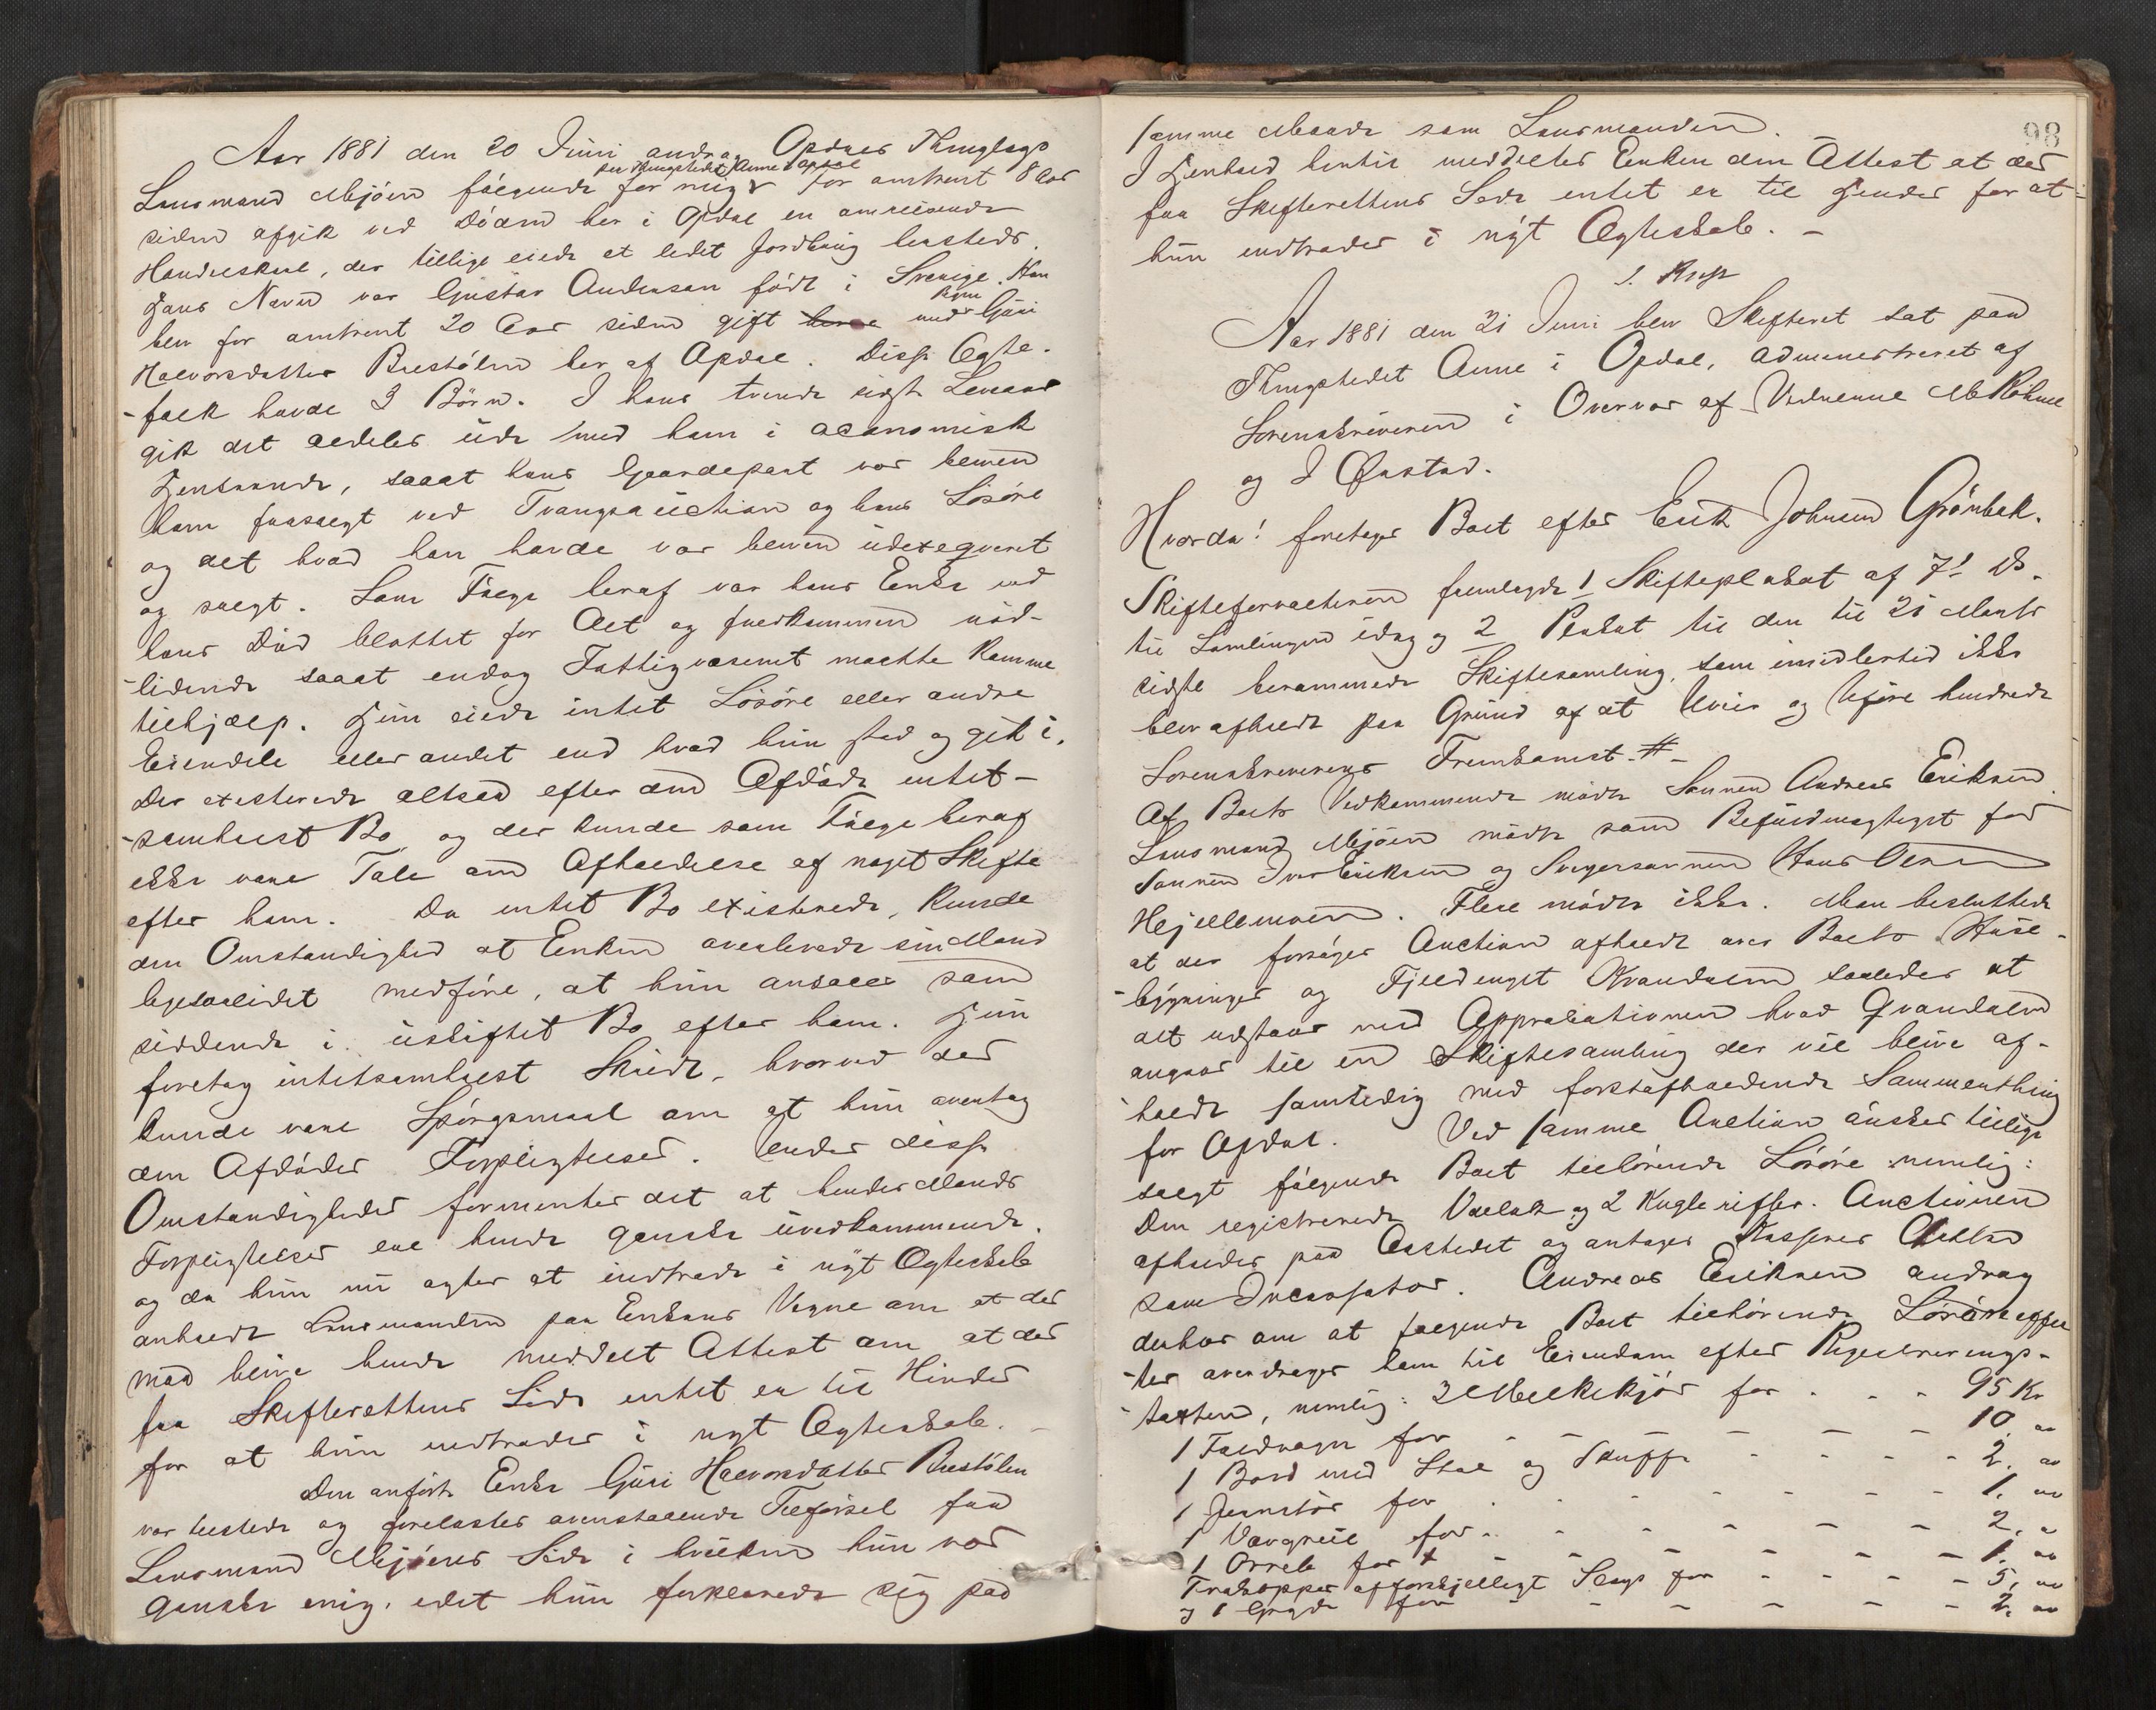 Aar 1881 den 20 Juni androg Opdals Thinglags
paa Thingstedet Aune i Opdal
Lensmand Mjøen følgende for mig: for omtrent 8 Aar
siden afgik ved Døden her i Opdal en omreisende
Handelskarl, der tillige eiede et lidet Jordbrug hersteds.
Hans Navn var Gustav Andersen født i Sverige. Han
blev for omtrent 20 Aar siden gift med Guri
Halvorsdatter Brestølen her af Opdal. Disse Ægte-
-folk havde 3 Børn. I hans tvende sidste Leveaar
gik det aldeles ude med ham i oeconomisk
Henseende, saaat hans Gaardepart var bleven
ham frasolgt ved Tvangsauction og hans Løsøre
og alt hvad han havde var bleven udexeqveret
og solgt. Som Følge heraf var hans Enke ved
hans Død blottet for Alt og fuldkommen nød-
-lidende saaat endog Fattigvæsenet maatte komme
tilhjælp. Hun eiede intet Løsøre eller andre
Eiendele eller andet end hvad hun stod og gik i.
Der existerede altsaa efter den Afdøde intet-
-somhelst Bo og der kunde som Følge heraf
ikke være Tale om Afholdelse af noget Skifte
efter ham. Da intet Bo existerede, kunde
den Omstændighed at Enken overlevede sin Mand
ligesaalidet medføre, at hun ansaaes som
siddende i uskiftet Bo efter ham. Hun
foretog intetsomhelst Skridt, hvorved der
kunde være Spørgsmaal om at hun overtog
den Afdødes Forpligtelser. Under disse
Omstændigheder formentes det at hendes Mands
Forpligtelser ere hende ganske uvedkommende.
og da hun nu agter at indtræde i nyt Ægteskab
anholdt Lensmanden paa Enkens Vegne om at der
maa blive hende meddelt Attest om at der
fra Skifterettens Side intet er til Hinder
for at hun indtræder i nyt Ægteskab. -
Den anførte Enke Guri Halvorsdatter Brestølen
var tilstede og forelæstes ovenstaaende Tilførsel fra
Lensmand Mjøens Side i hvilken hun var
ganske enig, idet hun forklarede sig paa
98
samme Maade som Lensmanden.
I Henhold hertil meddeltes Enken den Attest at der
fra Skifterettens Side intet er til Hinder for at
hun indtræder i nyt Ægteskab. -
Aar 1881 den 21 Juni blev Skifteret sat paa
Thingstedet Aune i Opdal, administreret af
Sorenskriveren i Overvær af Vidnerne
og
Hvorda! foretoges Boet efter Erik Johnsen Grønbæk.
Skifteforvalteren fremlagde 1 Skifteplakat af 7! ds.
til Samlingen idag og 2 Plakat til den til 21 Marts
sidste berammede Skiftesamling, som imidlertid ikke
blev afholdt paa Grund af at Uveir og Uføre hindrede
Sorenskriverens Fremkomst. #-
Af Boets Vedkommende mødte Sønnen Andreas Eriksen.
Lensmand Mjøen mødte som Befuldmægtiget for
Sønnen Iver Eriksen og Svigersønnen Hans Olsen
. Flere mødte ikke. Man besluttede
at der forsøges Auction afholdt over Boets Huse-
-bygninger og Fjeldenget Kvandalen saaledes at
alt udstaar med Approbationen hvad Qvandalen
angaar til en Skiftesamling der vil blive af-
-holdt samtidig med førstafholdende Sammenthing
for Opdal. Ved samme Auction ønskes tillige
solgt følgende Boet tilhørende Løsøre nemlig:
Den registrerede Vallak og 2 Kuglerifler. Auctionen
afholdes paa Aastedet og antages Kasserer
som Incassator. Andreas Eriksen androg
derhos om at følgende Boet tilhørende Løsøreeffec
-ter overdrages ham til Eiendom efter Registrerings-
-taxten, nemlig: 3 Melkekjør for - - - 95 Kr
1 Faldvogn for - - - 10. "
1 Bord med Stol og Skuffe - - - 2. "
1 Jernstør for - - - 1. "
1 Vævgreie for - - - 2. "
1 Orreb for - - - 1. "
Trækopper af forskjelligt Slags for - - - 5. "
og 1 Gryde for - - - 2. "